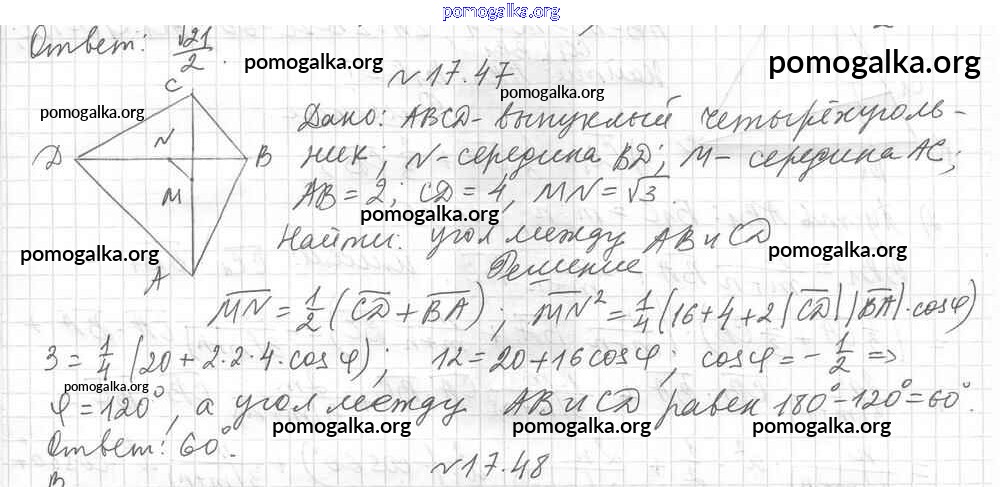 pomogalka.org
Ответ: √21/2.
pomogalka.org
pomogalka.org
N 17.47
pomogalka.org
pomogalka.org
C
N
D
B
M
A
Дано: ABCD - выпуклый четырёхуголь-
ник; N - середина BD; M - середина AC;
AB = 2; CD = 4, MN = √3.
pomogalka.org
Найти: угол между AB и CD
pomogalka.org
pomogalka.org
Решение
MN = 1/2 (CD + BA); MN² = 1/4 (16 + 4 + 2|CD||BA|·cosφ)
3 = 1/4 (20 + 2·2·4·cosφ); 12 = 20 + 16cosφ; cosφ = - 1/2 =>
pomogalka.org
φ = 120°, а угол между AB и CD равен 180° - 120° = 60°.
pomogalka.org
pomogalka.org
pomogalka.org
Ответ: 60°.
N 17.48
B